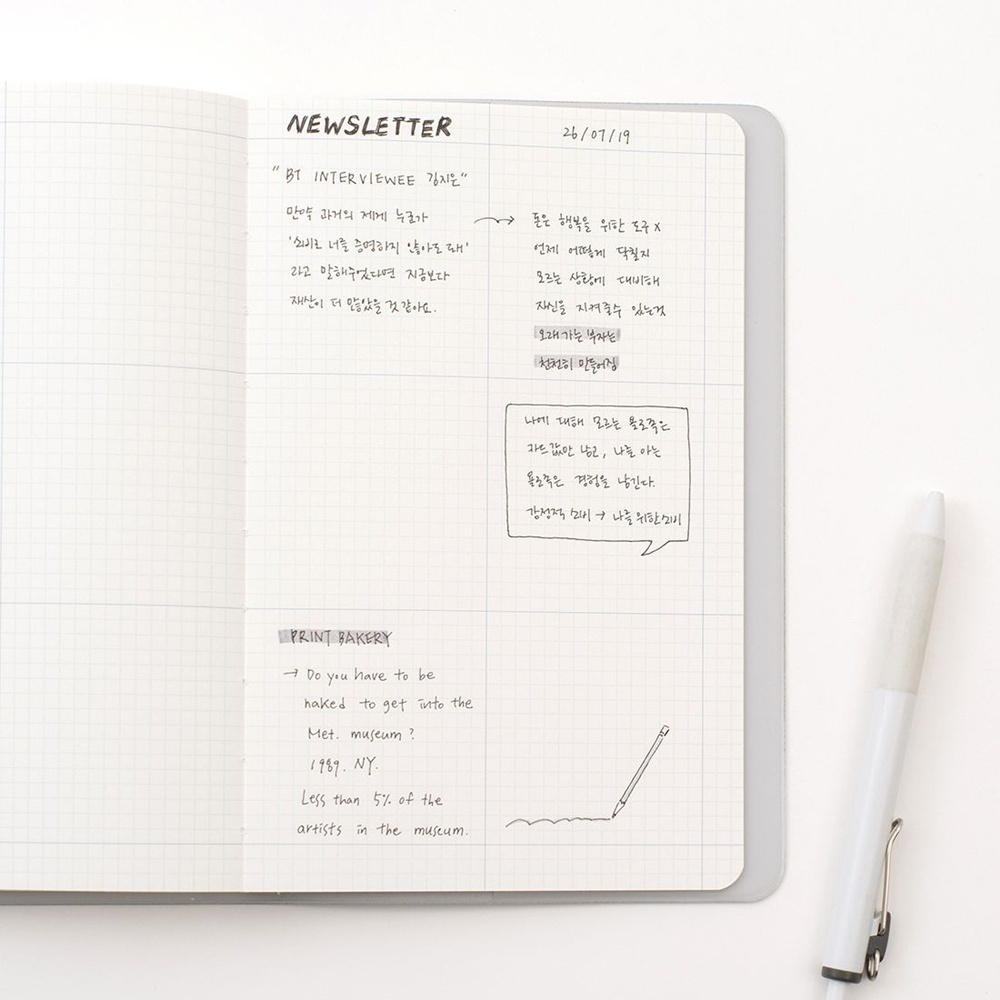 NEWSLETTER
26/07/19
"BT INTERVIEWEE 김지은"
만약 과거의 제게 누군가
'소비로 너를 증명하지 않아도 돼'
라고 말해주었다면 지금보다
재산이 더 많았을 것 같아요.
돈은 행복을 위한 도구 x
언제 어떻게 닥칠지
모르는 상황에 대비해
자신을 지켜줄수 있는것
오래 가는 부자는
천천히 만들어짐
나에 대해 모르는 욜로족은
카드값만 남고, 나를 아는
욜로족은 경험을 남긴다.
감정적 소비 → 나를 위한 소비
PRINT BAKERY
→ Do you have to be
naked to get into the
Met. museum?
1989. NY.
Less than 5% of the
artists in the museum.